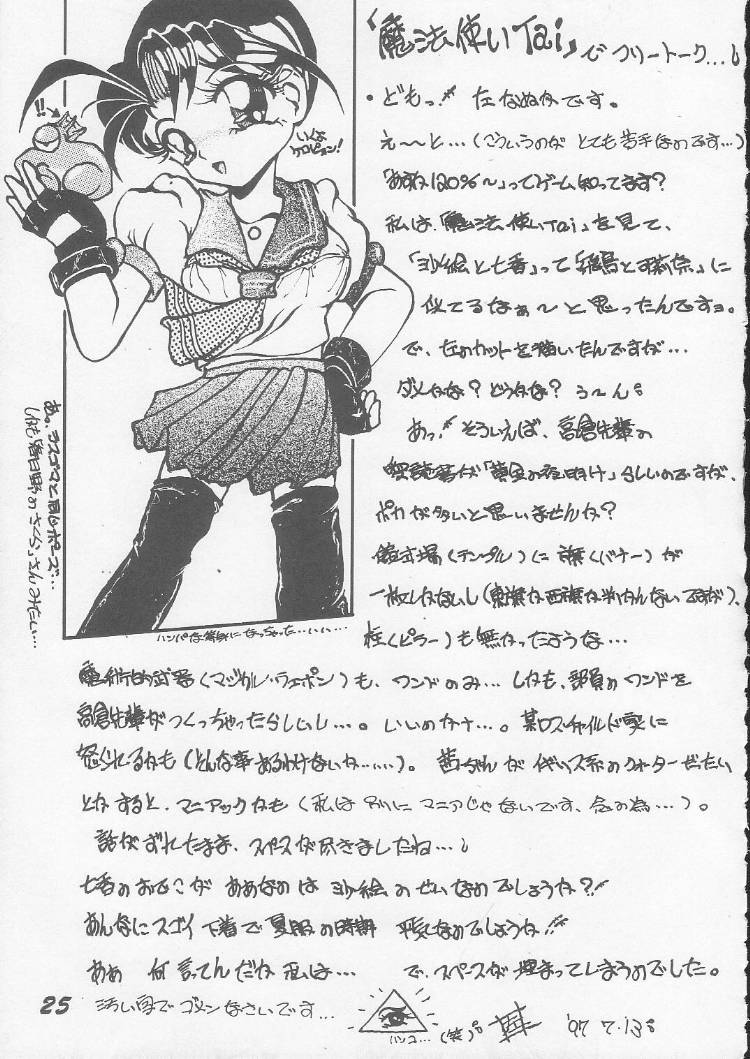 「魔法使いTai」でフリートーク…
・どもっ!! たなぬかです。
え〜と…(こういうのが とても苦手なのです…)
「あすか120%〜」ってゲーム知ってます?
私は「魔法使いTai」を見て、
「沙絵と七香」って「飛鳥と可莉奈」に
似てるなぁ〜と思ったんですョ。
で、左のカットを描いたんですが…
ダメかな? どうかな? う〜ん。
あっ!! そういえば、高倉先輩の
解読書が「黄金の夜明け」らしいのですが、
ポカが多いと思いませんか?
儀式場(テンプル)に旗(バナー)が
一枚しかないし(東旗か西旗か判かんないですが)、
柱(ピラー)も無かったような…
魔術的武器(マジカル・ウェポン)も、ワンドのみ… しかも、部員のワンドを
高倉先輩がつくっちゃったらしいし…。いいのかナ…。某ロスチャイルド家に
怒られるかも(そんな事あるわけないか……)。茜ちゃんがイギリス系のクォーターだったい
とかすると、マニアックかも(私は別にマニアじゃないです、念の為…)。
話がずれたまま、スペースが尽きましたね…
七香のおでこが ああなのは 沙絵のせいなのでしょうか?!!
あんなにスゴイ下着で夏服の時期 平気なのでしょうか!!
ああ 何言ってんだか 私は… で、スペースが埋まってしまうのでした。
汚い字で ゴメンなさいです…
ハンコ… (笑)。
'97 7.13。
25
!!
いくよ ケロピョン!
あ。ラスゴマと同じポーズ…
しかも春日野の「さくら」さんみたい…
ハンパな等身になっちゃった……